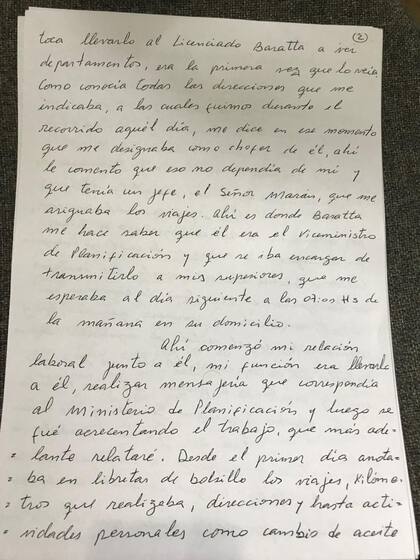 (2)
toca llevarlo al Licenciado Baratta a ver
departamentos, era la primera vez que lo veía,
como conocía todas las direcciones que me
indicaba, a las cuales fuimos durante el
recorrido aquél día, me dice en ese momento
que me designaba como chofer de él, ahí
le comento que eso no dependía de mí y
que tenía un jefe, el Señor Marán, que me
asignaba los viajes. Ahí es donde Baratta
me hace saber que él era el Viceministro
de Planificación y que se iba encargar de
transmitirlo a mis superiores, que me
esperaba al día siguiente a las 07:00 Hs de
la mañana en su domicilio.
Ahí comenzó mi relación
laboral junto a él, mi función era llevarlo
a él, realizar mensajería que correspondía
al Ministerio de Planificación y luego se
fué acrecentando el trabajo, que más ade-
= lante relataré. Desde el primer día anota-
= ba en libretas de bolsillo los viajes, Kilóme-
= tros que realizaba, direcciones y hasta acti-
= vidades personales como cambio de aceite